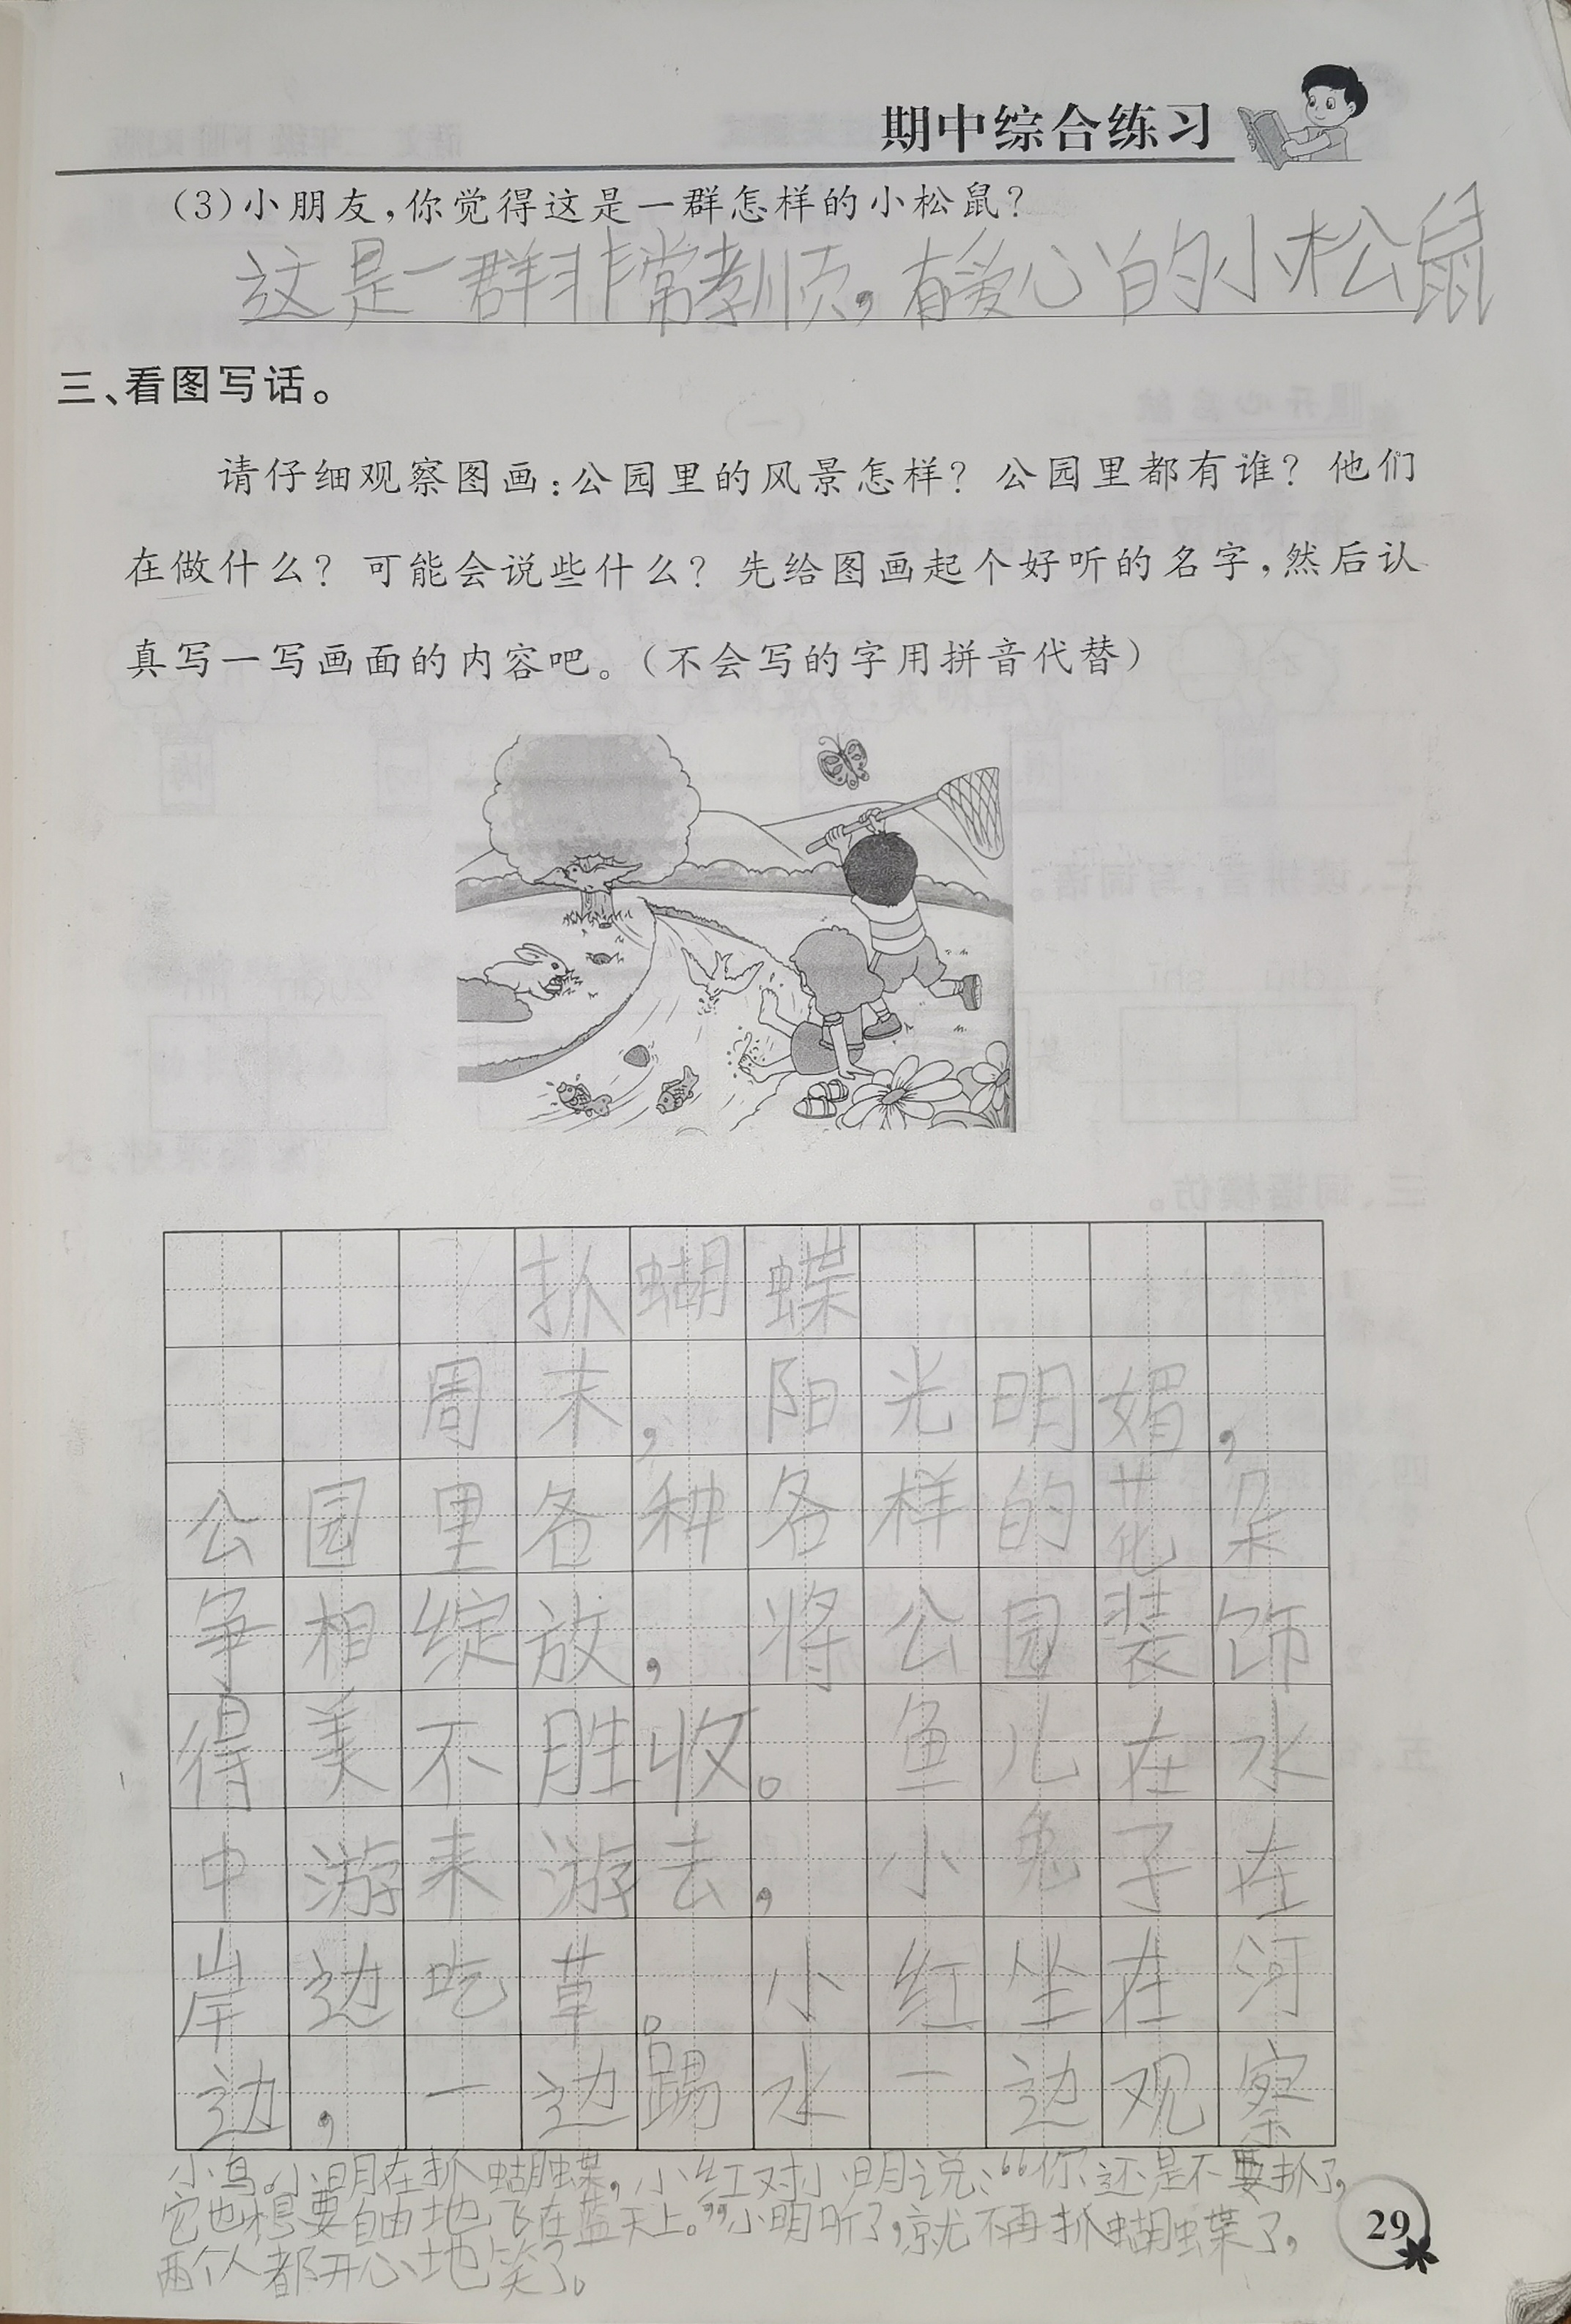 期中综合练习
(3)小朋友,你觉得这是一群怎样的小松鼠?
这是一群非常孝顺,有爱心的小松鼠
三、看图写话。
请仔细观察图画:公园里的风景怎样? 公园里都有谁? 他们
在做什么? 可能会说些什么? 先给图画起个好听的名字,然后认
真写一写画面的内容吧。(不会写的字用拼音代替)
扑蝴蝶
周末,阳光明媚,
公园里各种各样的花朵
争相绽放,将公园装饰
得美不胜收。鱼儿在水
中游来游去,小兔子在
岸边吃草。小红坐在河
边,一边踢水一边观察
小鸟。小明在抓蝴蝶,小红对小明说:“你还是不要抓了,
它也想要自由地飞在蓝天上。”小明听了,就不再抓蝴蝶了,
两个人都开心地笑了。
29